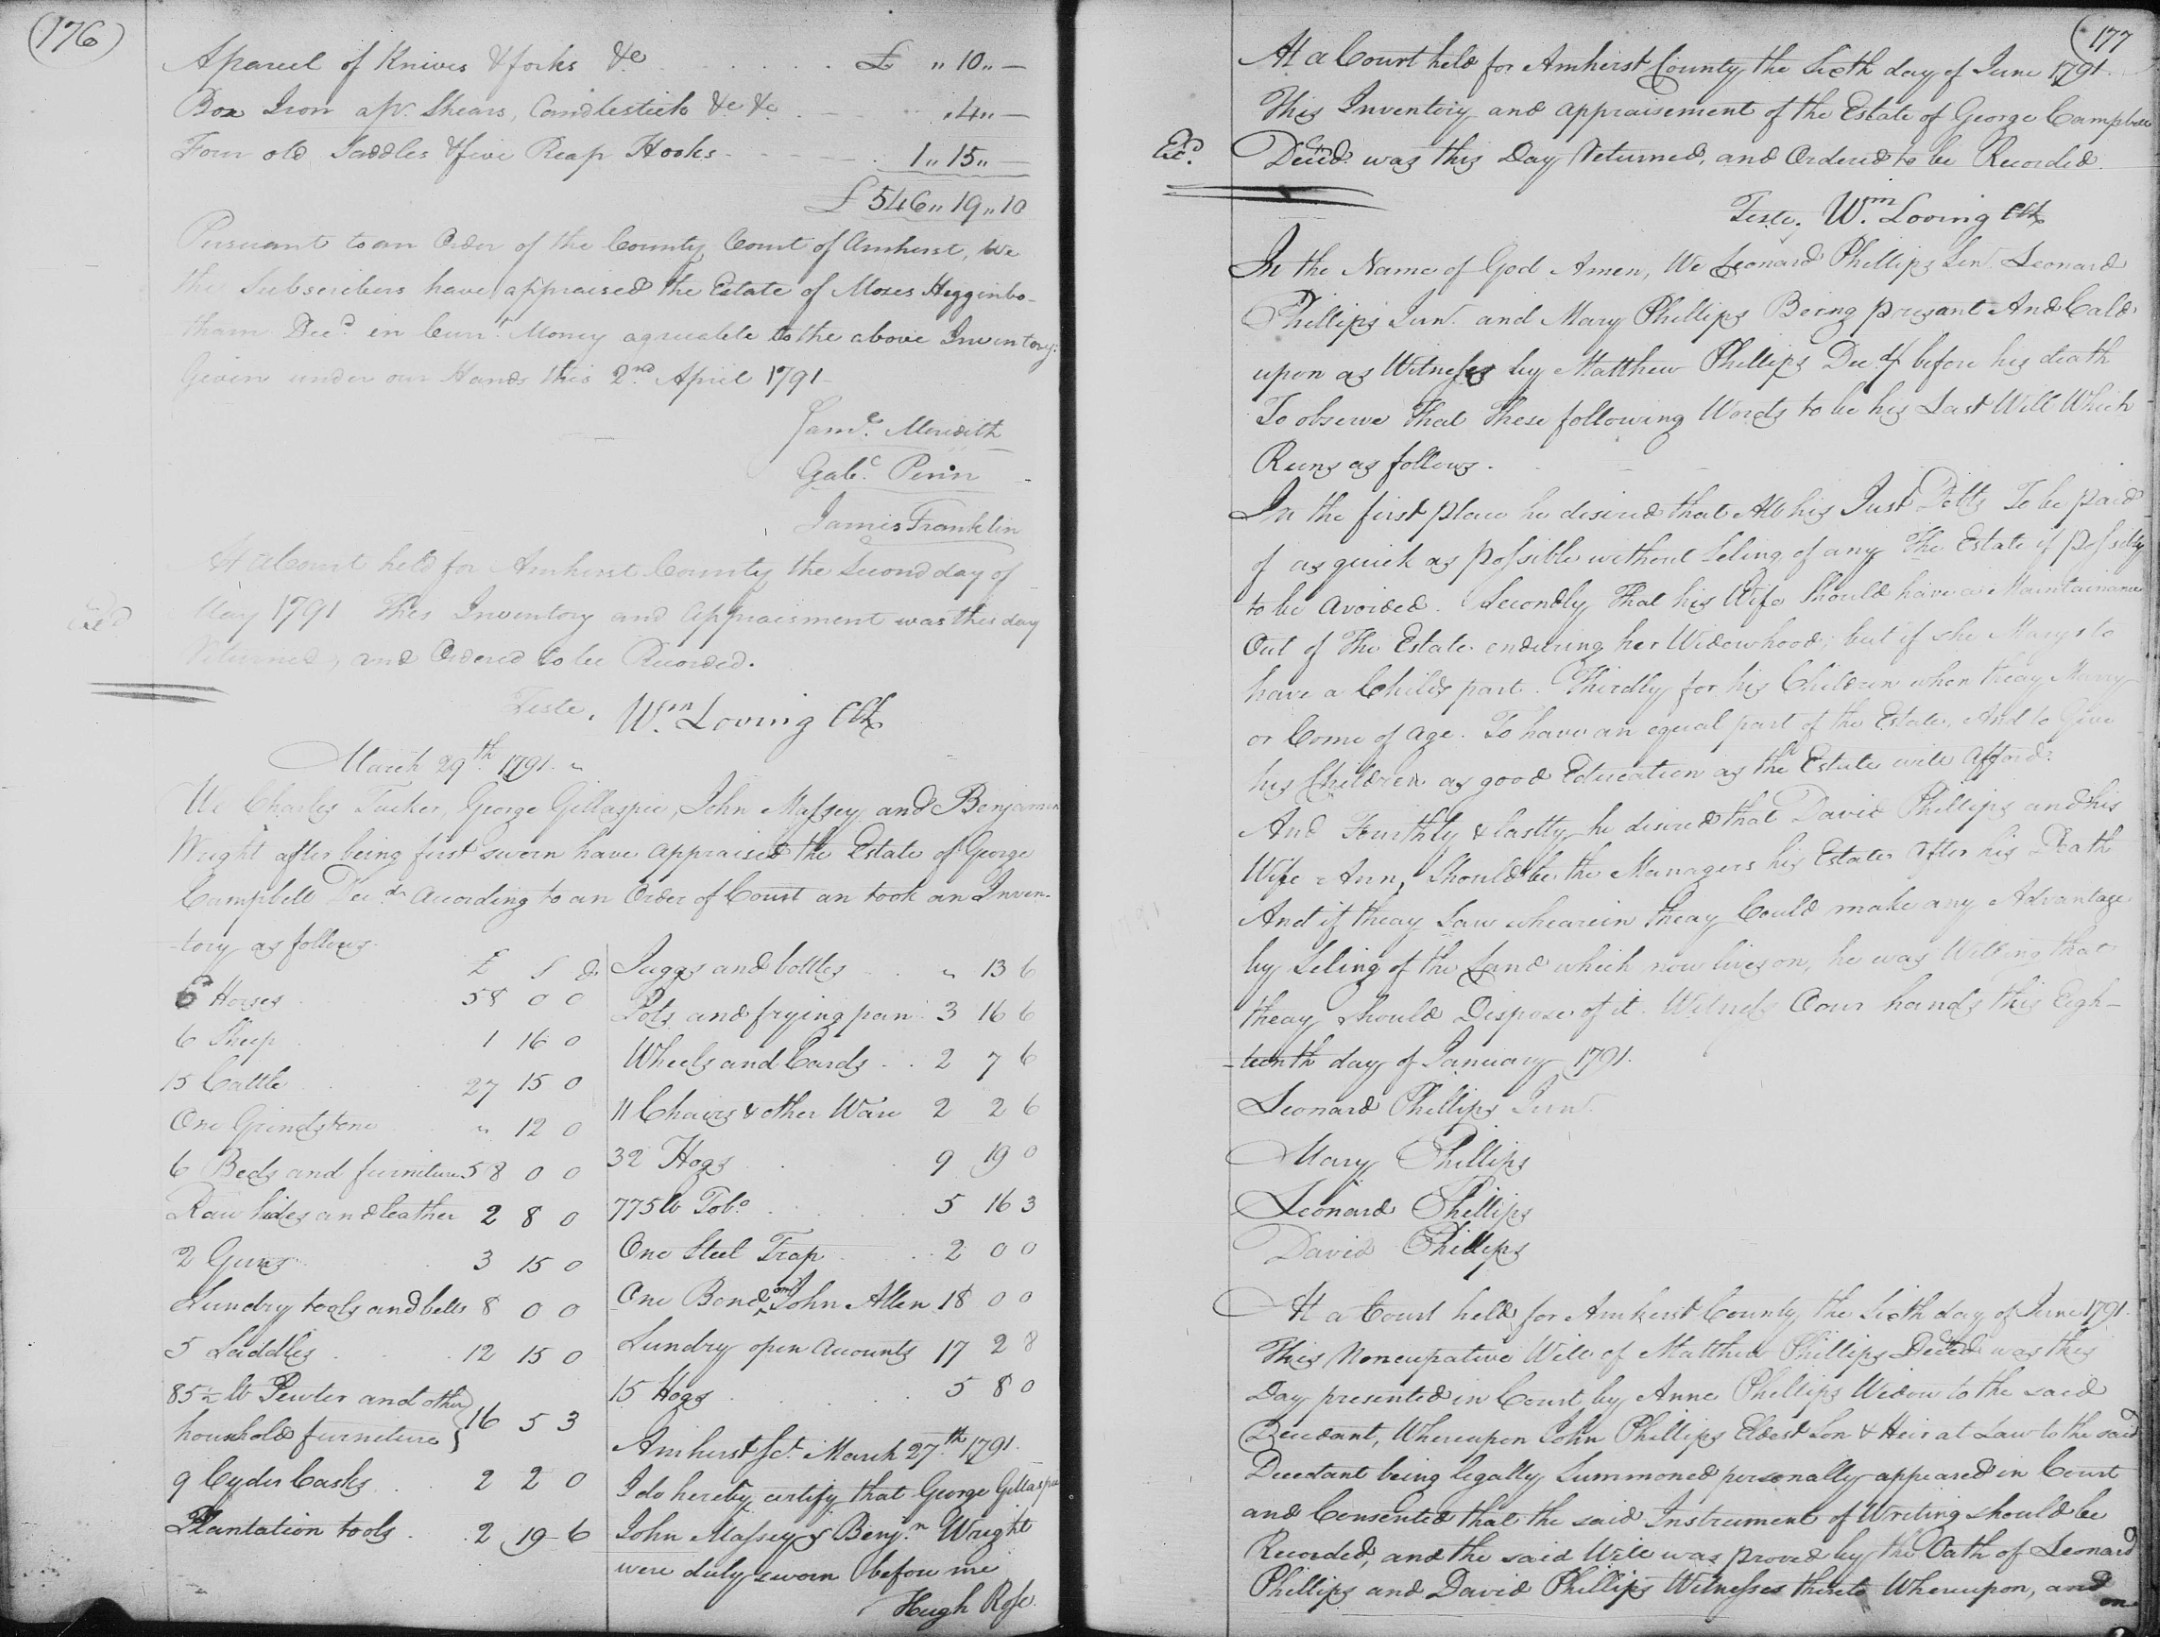 (176)
A parcel of Knives & forks &c . . . . . . £ " 10 " —
Box Iron a pr. Shears, Candlestick &c &c . . . " 4 " —
Four old Saddles & five Reap Hooks . . . . 1 " 15 " —
£ 546 " 19 " 10
Pursuant to an Order of the County Court of Amherst, We
the Subscribers have appraised the Estate of Moses Higginbo-
tham Decd. in Curt. Money agreeable to the above Inventory.
Given under our Hands this 2nd. April 1791
Saml. Meredith
Gabl. Penn
James Franklin
At a Court held for Amherst County the Second day of
May 1791 This Inventory and Appraisment was this day
Returned, and Ordered to be Recorded.
Teste, Wm. Loving Clk
March 29th. 1791.
We Charles Tucker, George Gillaspie, John Massey and Benjamin
Wright after being first sworn have appraised the Estate of George
Campbell Decd. according to an Order of Court an took an Inven-
-tory as follows.
£ S d
6 Horses 58 0 0
6 Sheep 1 16 0
15 Cattle 27 15 0
One Grindstone " 12 0
6 Beds and furniture 58 0 0
Raw hides and leather 2 8 0
2 Guns 3 15 0
Sundry tools and bells 8 0 0
5 Saddles 12 15 0
85½ lb Pewter and other
houshold furniture } 16 5 3
9 Cyder Casks 2 2 0
Plantation tools 2 19 6
Juggs and bottles " 13 6
Pots and frying pan 3 16 6
Wheels and Cards 2 7 6
11 Chairs & other Ware 2 2 6
32 Hogs 9 19 0
775 lb Tobo. 5 16 3
One Steel Trap 2 0 0
One Bond on John Allen 18 0 0
Sundry open Accounts 17 2 8
15 Hogs 5 8 0
Amherst Sct. March 27th. 1791.
I do hereby certify that George Gillaspie
John Massey & Benjn. Wright
were duly sworn before me
Hugh Rose.
(177
At a Court held for Amherst County the Sixth day of June 1791.
This Inventory and appraisement of the Estate of George Campbell
Exd. Deced. was this Day Returned, and Ordered to be Recorded.
Teste, Wm. Loving Clk
In the Name of God Amen, We Leonard Phillips Senr. Leonard
Phillips Junr. and Mary Phillips Being present And Cald
upon as Witness by Matthew Phillips Decd. before his death
To observe That These following Words to be his Last Will Which
Runs as follows.
In the first place he desired that All his Just Debts To be paid
of as quick as possible without Seling of any The Estate if possibly
to be avoided. Secondly That his Wife Should have a Maintainance
Out of The Estate enduring her Widowhood, but if she Marys to
have a Childs part. Thirdly for his Children when theay Marry
or Come of age. To have an equal part of the Estate, And to Give
his Children as good Education as the Estate will afford.
And Fourthly & lastly he desired that David Phillips and his
Wife Ann, Should be the Managers his Estate after his Death
And if theay Saw whearein theay Could make any Advantage
by Seling of the Land which now lives on, he was Willing that
theay should Dispose of it. Witness Our hands this Eigh-
-teenth day of January 1791.
Leonard Phillips Junr.
Mary Phillips
Leonard Phillips
David Phillips
At a Court held for Amherst County the Sixth day of June 1791.
This Noncupative Will of Matthew Phillips Deced was this
Day presented in Court by Anne Phillips Widow to the said
Decedant, Whereupon John Phillips Eldest Son & Heir at Law to the said
Decedant being legally Summoned personally appeared in Court
and Consented that the said Instrument of Writing should be
Recorded, and the said Will was proved by the Oath of Leonard
Phillips and David Phillips Witnesses thereto Whereupon, and
on